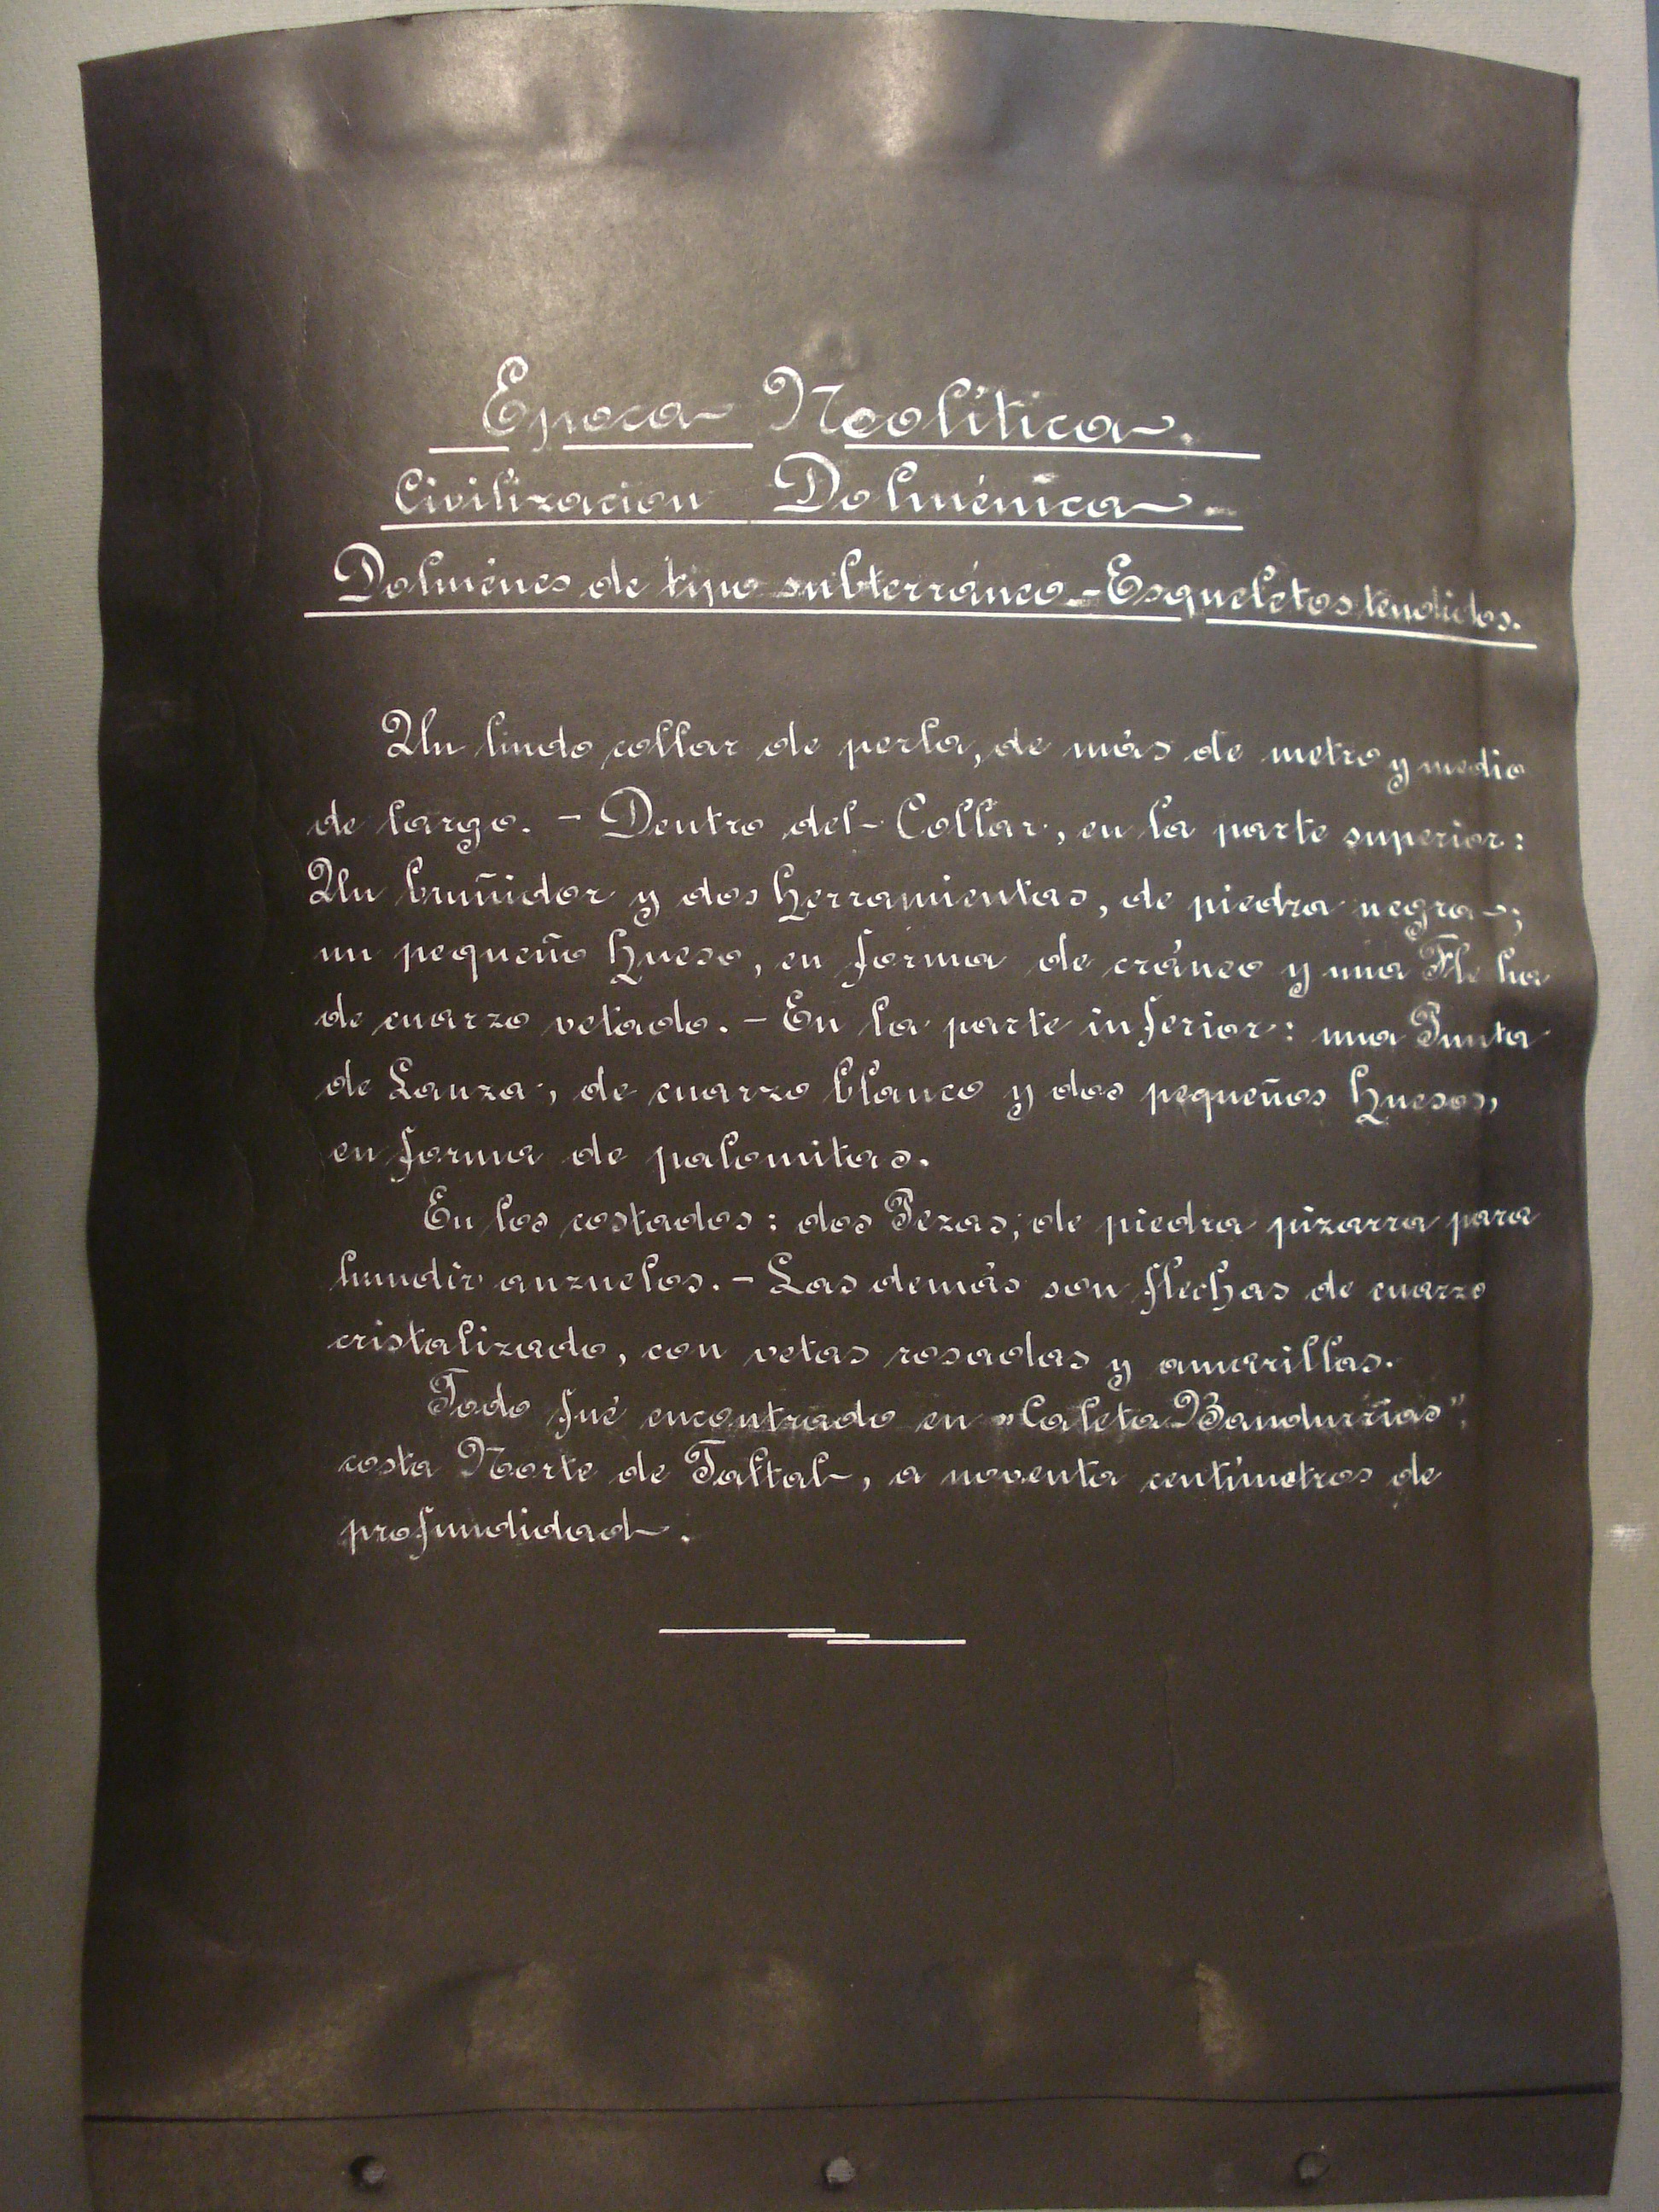 Epoca Neolítica.
Civilizacion Dolménica.-
Dolménes de tipo subterráneo.-Esqueletos tendidos.
Un lindo collar de perla, de más de metro y medio
de largo. - Dentro del Collar, en la parte superior:
Un bruñidor y dos herramientas, de piedra negra;
un pequeño hueso, en forma de cráneo y una Flecha
de cuarzo vetado. - En la parte inferior: una Punta
de Lanza, de cuarzo blanco y dos pequeños huesos,
en forma de palomitas.
En los costados: dos Pezas, de piedra pizarra para
hundir anzuelos. - Las demás son flechas de cuarzo
cristalizado, con vetas rosadas y amarillas.
Todo fué encontrado en "Caleta Bandurrias",
costa Norte de Taltal, a noventa centímetros de
profundidad.